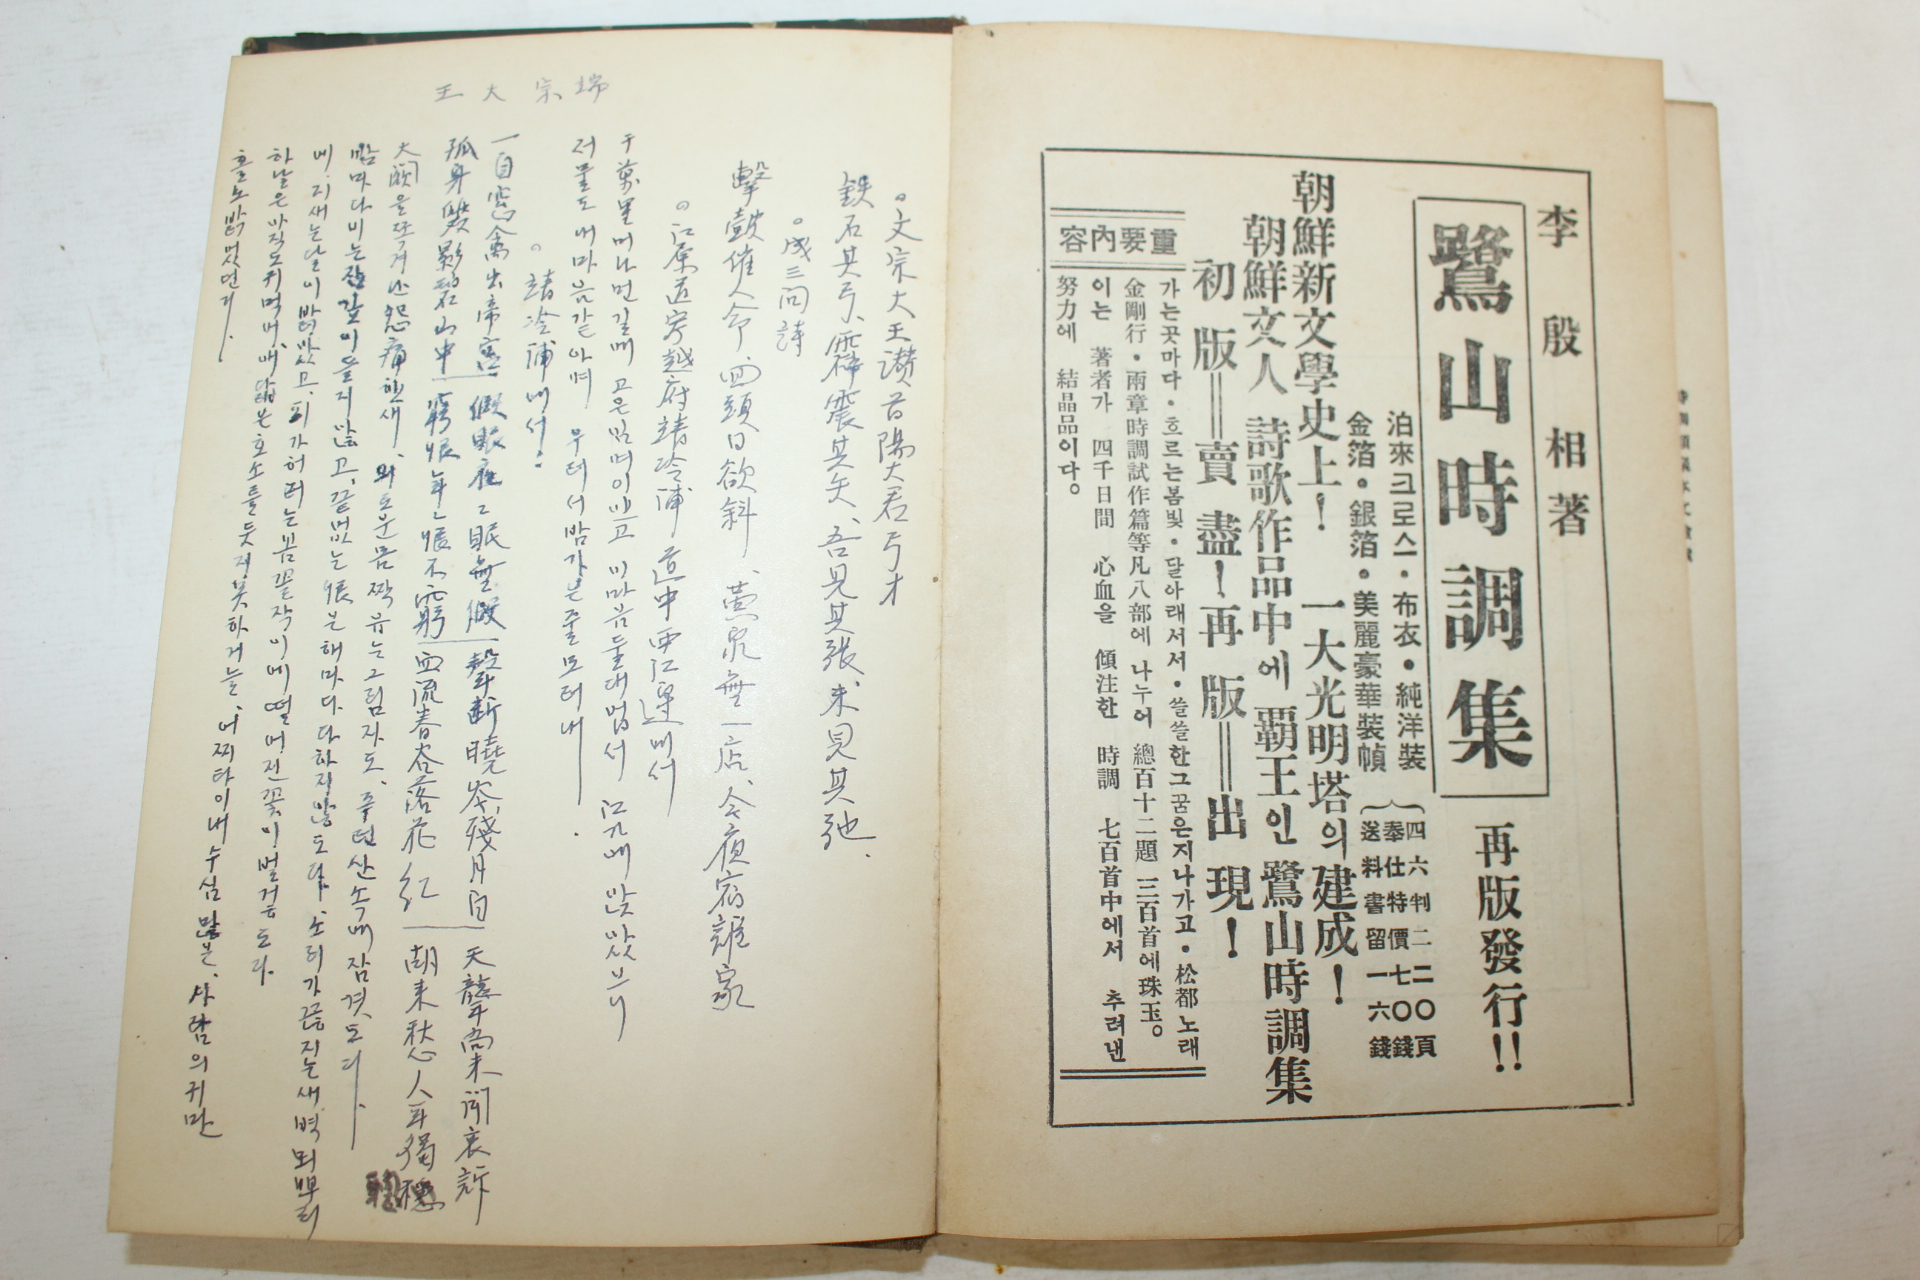 李殷相著
鷺山時調集
再版發行!!
泊來크로스·布衣·純洋裝
金箔·銀箔·美麗豪華裝幀
四六判二二〇頁
奉仕特價七〇錢
送料書留一六錢
朝鮮新文學史上! 一大光明塔의建成!
朝鮮文人 詩歌作品中에 覇王인 鷺山時調集
初版=賣盡!再版=出現!
重要內容
가는곳마다·흐르는봄빛·달아래서서·쓸쓸한그꿈은지나가고·松都노래
金剛行·兩章時調試作篇等凡八部에 나누어 總百十二題 三百首에珠玉。
이는 著者가 四千日間 心血을 傾注한 時調 七百首中에서 추려낸
努力에 結晶品이다。
。文宗大王讚首陽大君弓才
鉄石其弓、霹震其矢、吾見其張、未見其弛.
。成三問詩
擊鼓催人命、回頭日欲斜、黃泉無一店、今夜宿誰家
。江原道寧越府靖冷浦 道中 江邊에서
千萬里머나먼길에 고은님여이압고 이마음둘대업서 江가에안잣으니
저물도 내마음갓아여 우러서밤가는줄모러내
。靖冷浦에서.
端宗大王
一自寃禽出帝宮 假眠夜夜眠無假 聲斷曉岑殘月白 天聾尙未聞哀訴
孤身隻影碧山中 窮恨年年恨不窮 血流春谷落花紅 胡未愁人耳獨聰
大闕을 怨痛한새、외로운몸짝 는그림자도、푸런산속에잠겻도다.
밤마다 비는잠 이들지안고、끝없는恨은해마다 다하지안도다、소리가끊지는새벽뫼뿌리
에、지새는달이밝았고、피가허러는봄꼴작이에 떨어진꽃이벌겋도다.
하날은아직도귀먹어、애닯븐호소를듯지못하거늘、어찌타이내수심많븐、사람의귀만
홀노밝엇던가.